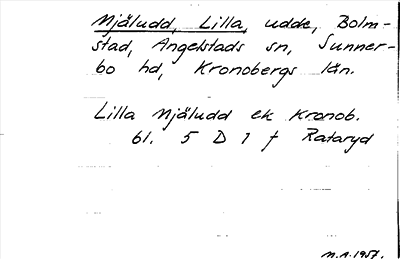 Mjäludd, Lilla, udde, Bolm-
stad, Angelstads sn, Sunner-
bo hd, Kronobergs län.
Lilla Mjäludd ek Kronob.
bl. 5 D 1 f Rataryd
M.A. 1957.